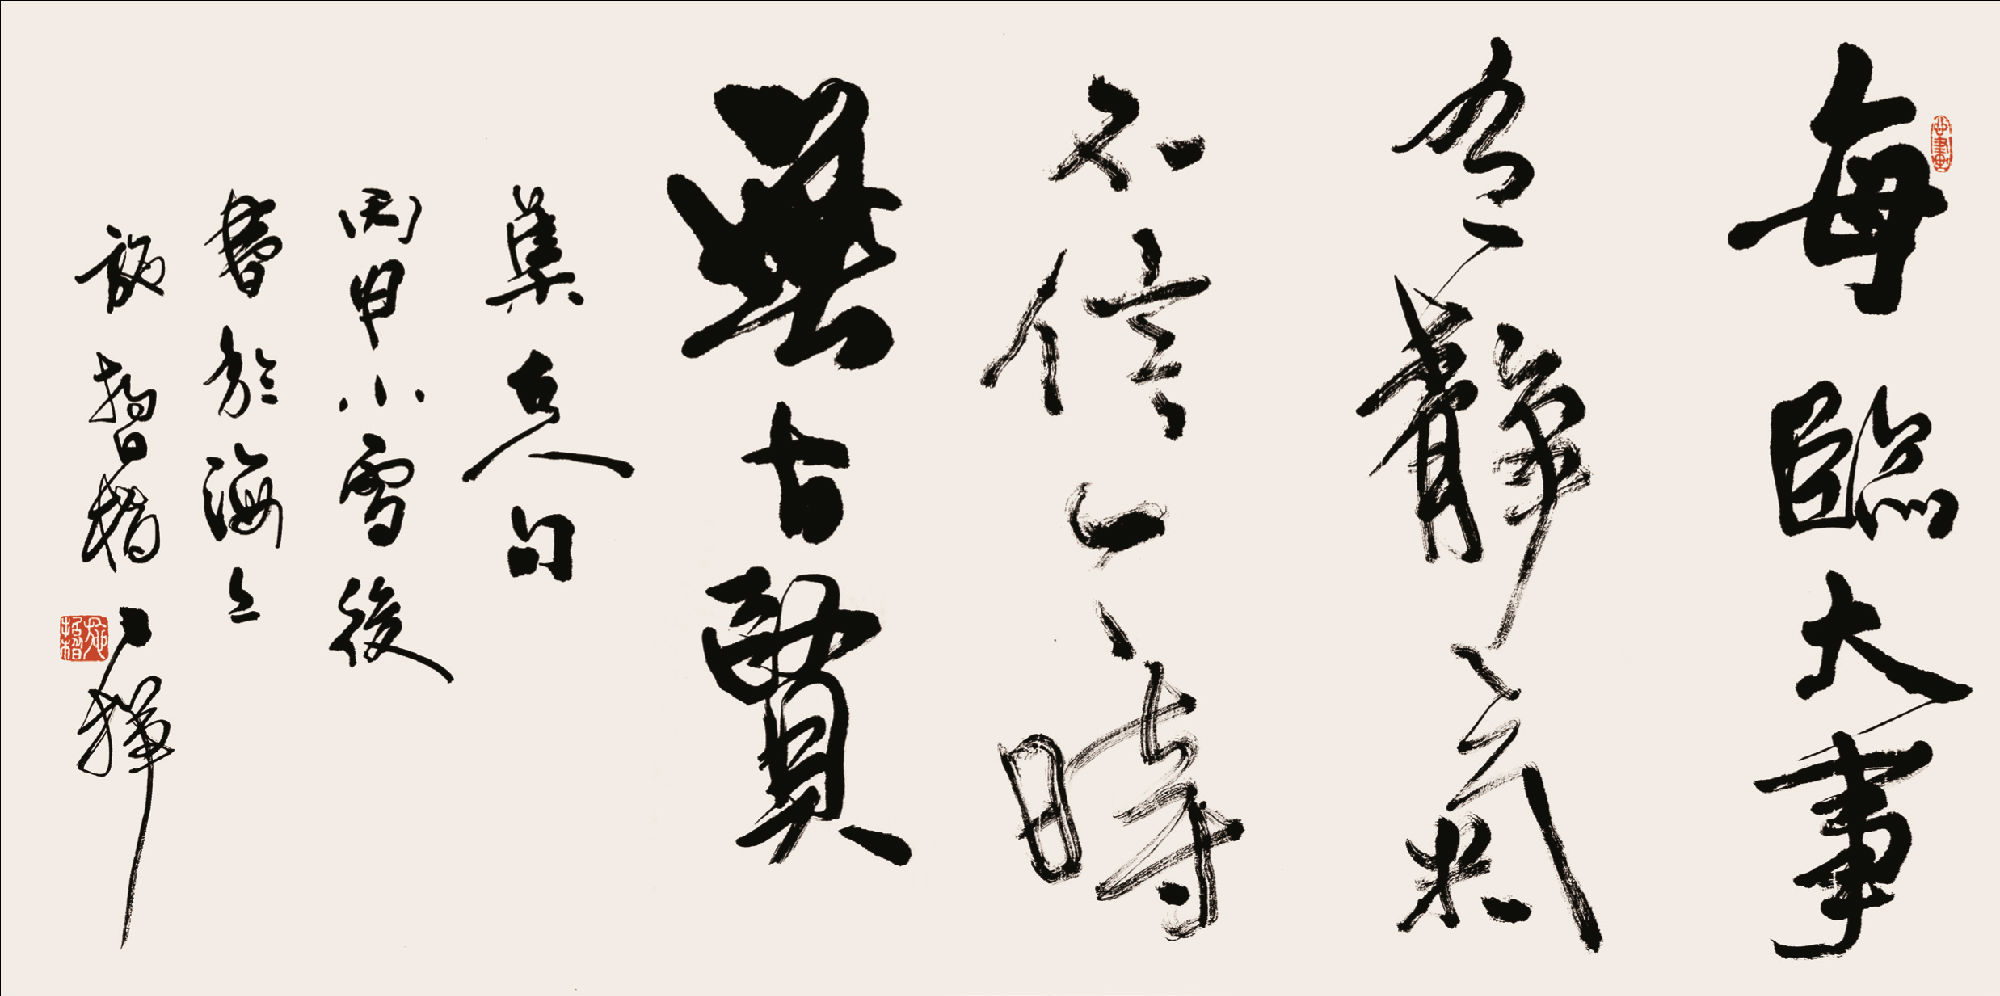 每臨大事
有靜氣
不信今時
無古賢
集古人句
丙申小雪後
書於海上
施